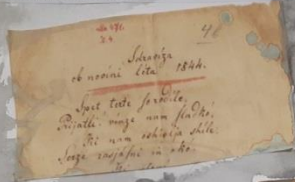 471.
4
Sdraviza
ob novini léta 1844.
Spet terte ſo rodile,
Prijatli! vinze nam ſladkó,
Ki nam oshivlja shile,
Serze rasjáſni in okó.